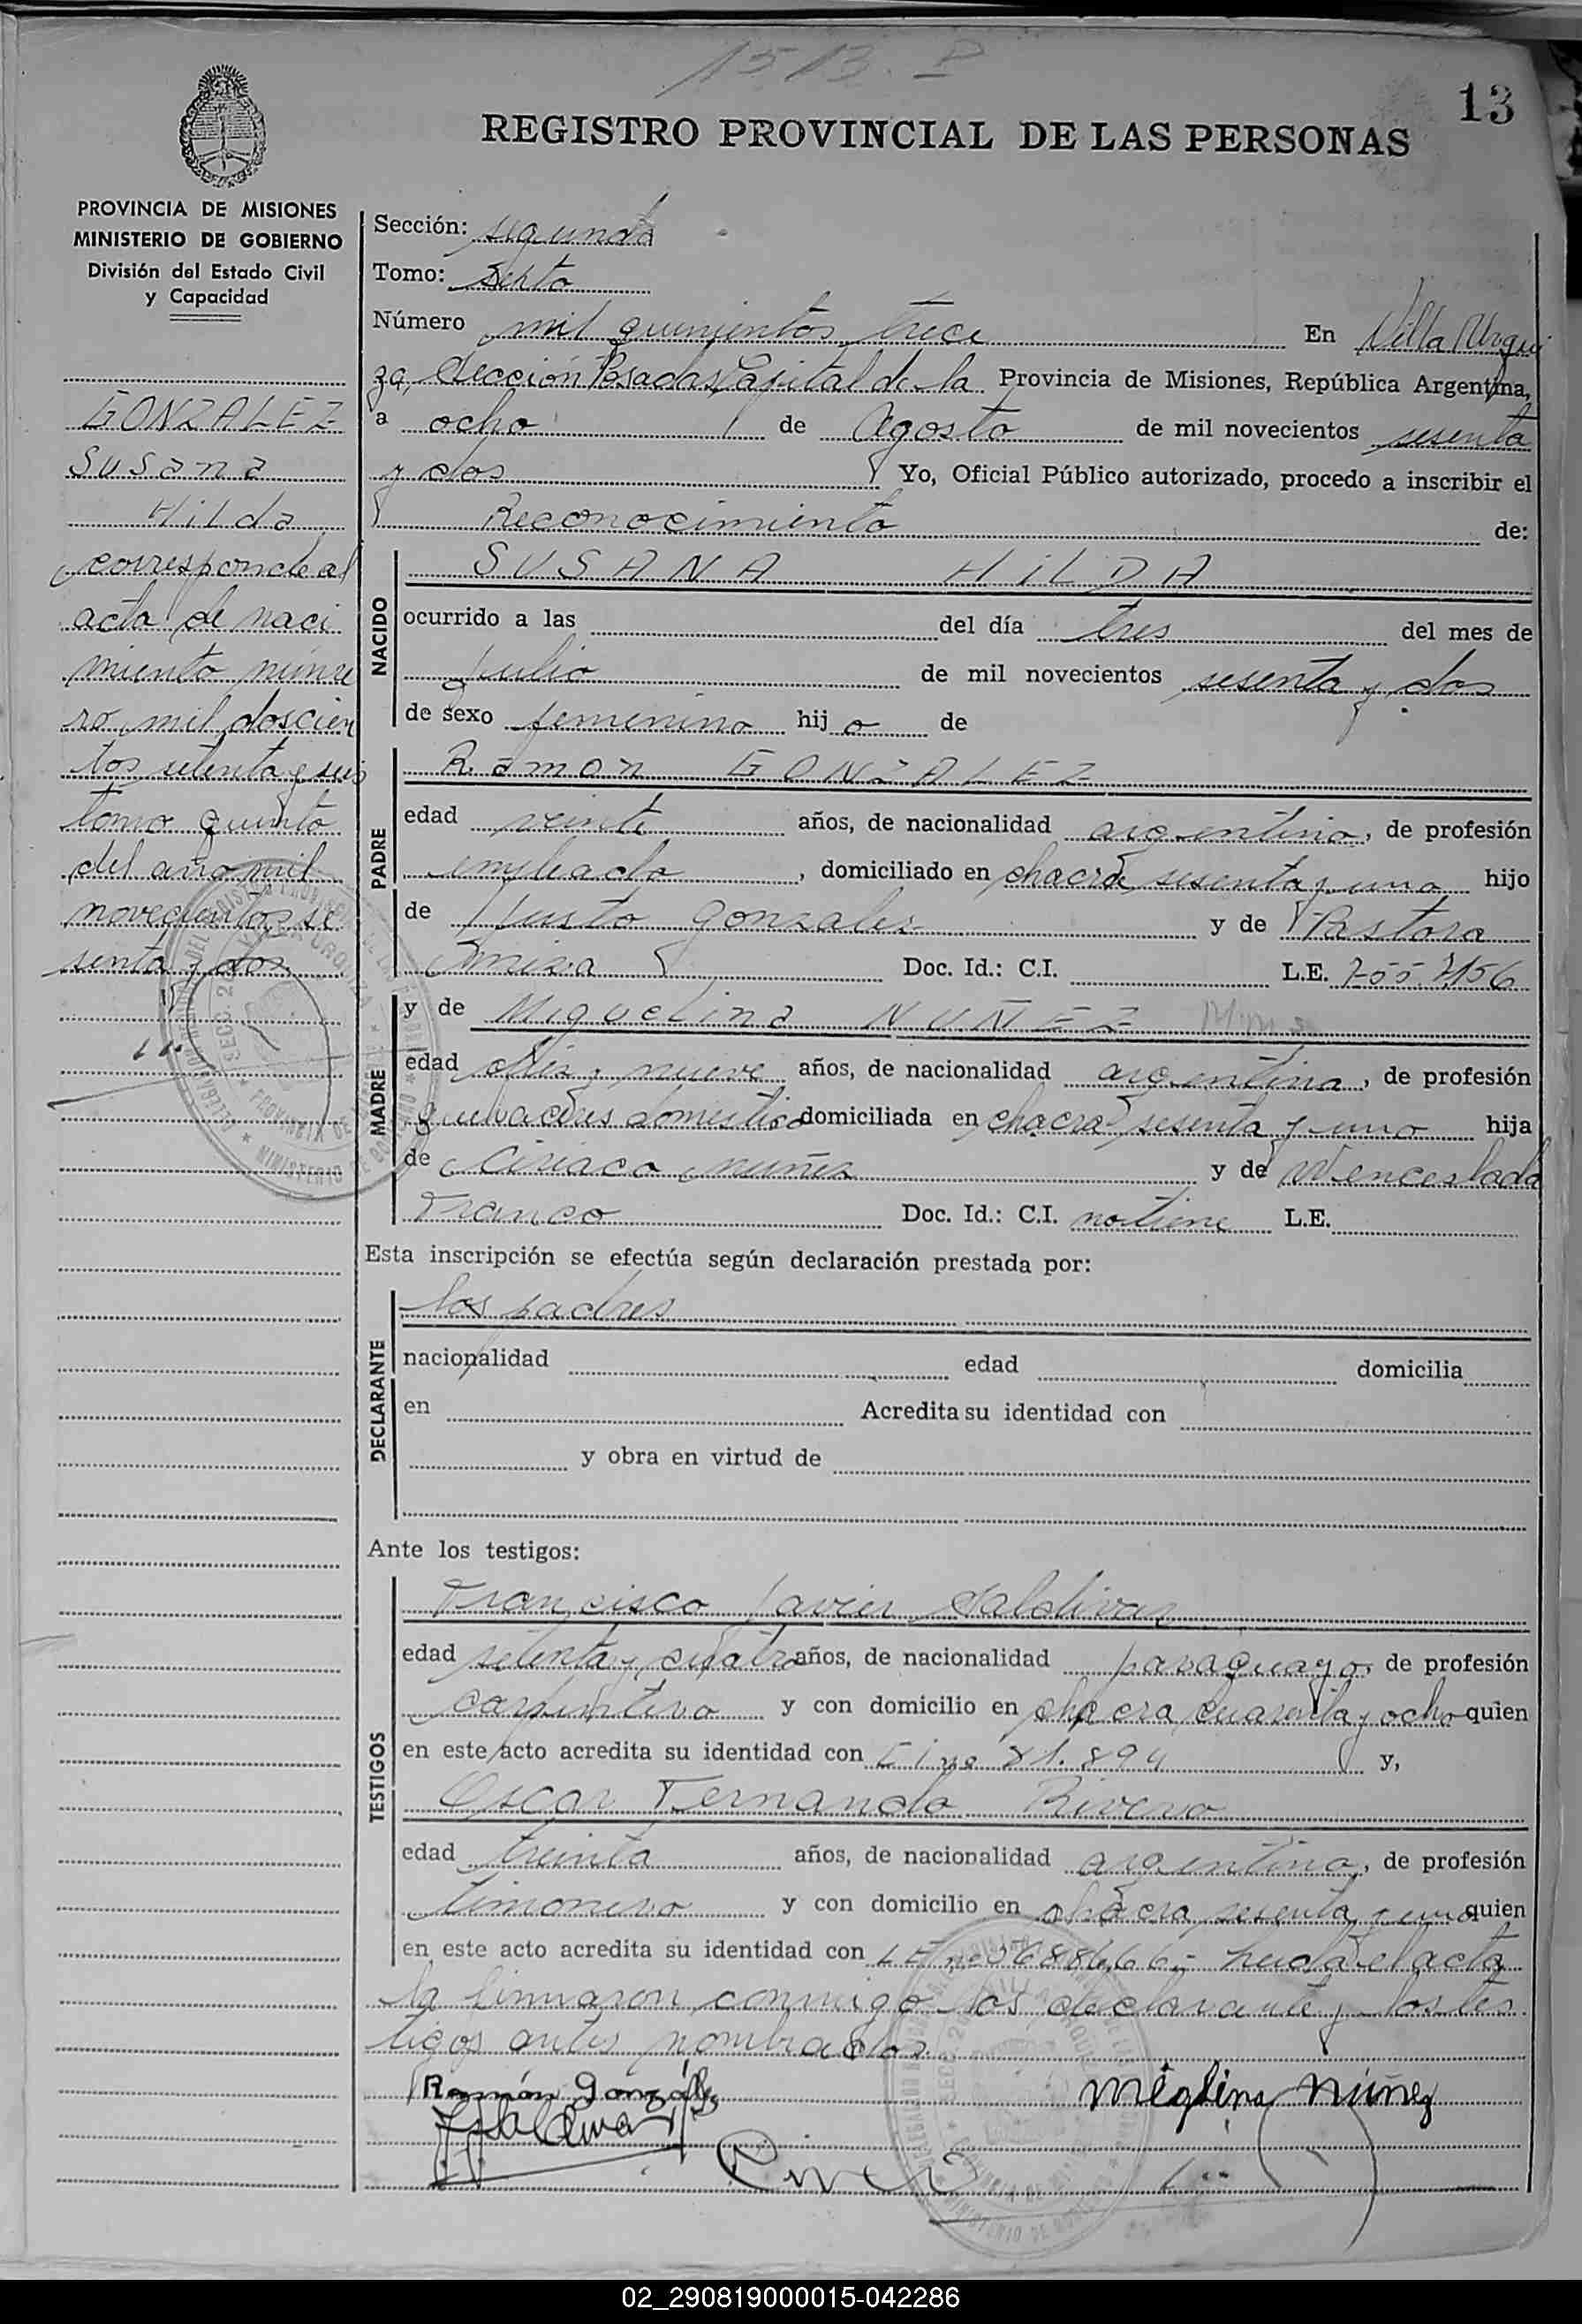 1513. P
13
REGISTRO PROVINCIAL DE LAS PERSONAS
PROVINCIA DE MISIONES
MINISTERIO DE GOBIERNO
División del Estado Civil
y Capacidad
GONZALEZ
Susana
Hilda
corresponde al
acta de naci
miento núme
ro mil doscien
tos setenta y seis
tomo quinto
del año mil
novecientos se
senta y dos
Sección: segunda
Tomo: sexto
Número mil quinientos trece En Villa Urqui
za, Sección Posadas, Capital de la Provincia de Misiones, República Argentina,
a ocho de Agosto de mil novecientos sesenta
y dos Yo, Oficial Público autorizado, procedo a inscribir el
Reconocimiento de:
NACIDO
SUSANA HILDA
ocurrido a las del día tres del mes de
Julio de mil novecientos sesenta y dos
de sexo femenino hijo de
PADRE
Ramon GONZALEZ
edad veinte años, de nacionalidad argentino, de profesión
empleado, domiciliado en chacra sesenta y uno hijo
de Justo Gonzalez y de Pastora
Doc. Id.: C.I. L.E. 7557.156
MADRE
y de Miguelina NUÑEZ
edad diez y nueve años, de nacionalidad argentina, de profesión
quehaceres domestico domiciliada en chacra sesenta y uno hija
de Ciriaco nuñez y de Wenceslada
Franco Doc. Id.: C.I. no tiene L.E.
Esta inscripción se efectúa según declaración prestada por:
DECLARANTE
los padres
nacionalidad edad domicilia
en Acredita su identidad con
y obra en virtud de
Ante los testigos:
TESTIGOS
Francisco Javier Saldivar
edad setenta y cuatro años, de nacionalidad paraguayo, de profesión
carpintero y con domicilio en chacra cuarenta y ocho quien
en este acto acredita su identidad con C i no 81.894 y,
Oscar Fernando Rivero
edad treinta años, de nacionalidad argentino, de profesión
timonero y con domicilio en chacra sesenta y uno quien
en este acto acredita su identidad con LE no 7688666- Leida el acta
la firmaron conmigo los declarante y los tes
tigos antes nombrados.
Ramón González
Miglina Núñez
02_290819000015-042286